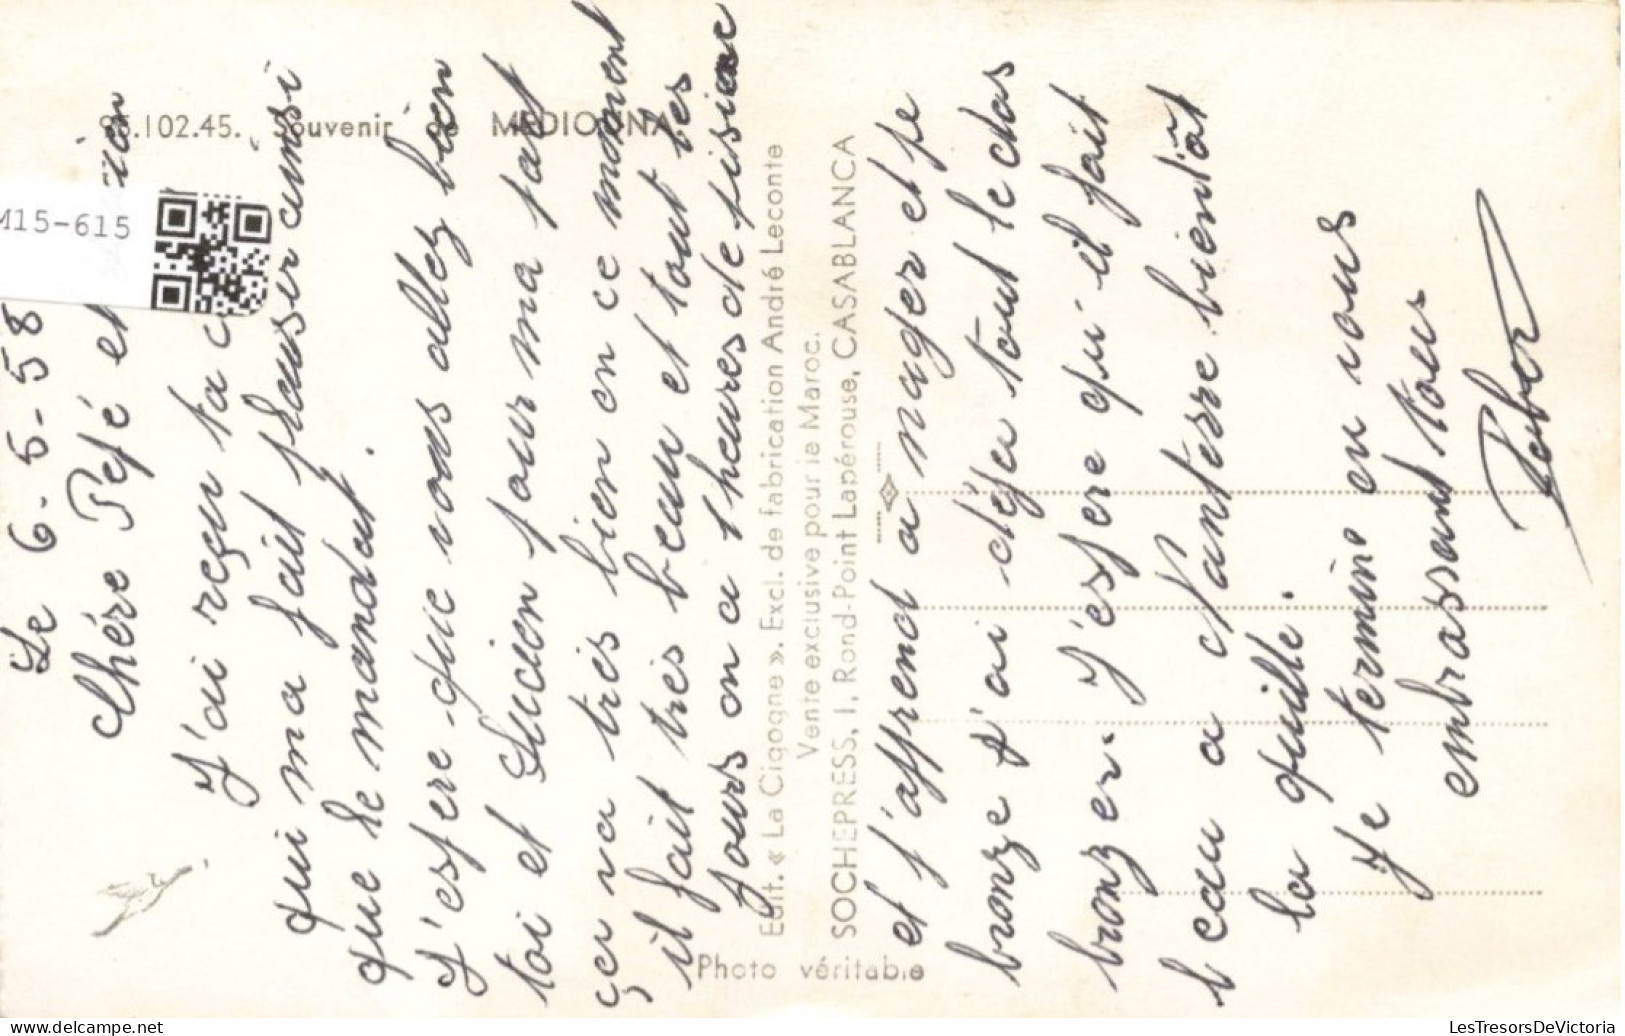 Le 6-5-58
Chére Pepé et
J'ai reçu ta
qui ma fait plaisir ainsi
que le mandat.
J'espere que vous allez bien
toi et Lucien pour ma part
ça va très bien en ce moment
il fait très beau et tout les
jours on a heures de pisine
et j'apprend a nager et je
bronze j'ai déja tout le dos
bronzer. J'espere qu'il fait
beau a Nanterre bientôt
la quille.
Je termine en vous
embrassant tous
95.102.45. Souvenir MEDIOUNA
M15-615
Edit. « La Cigogne ». Excl. de fabrication André Leconte
Vente exclusive pour le Maroc.
SOCHEPRESS, 1, Rond-Point Lapérouse, CASABLANCA
Photo véritable
LesTresorsDeVictoria